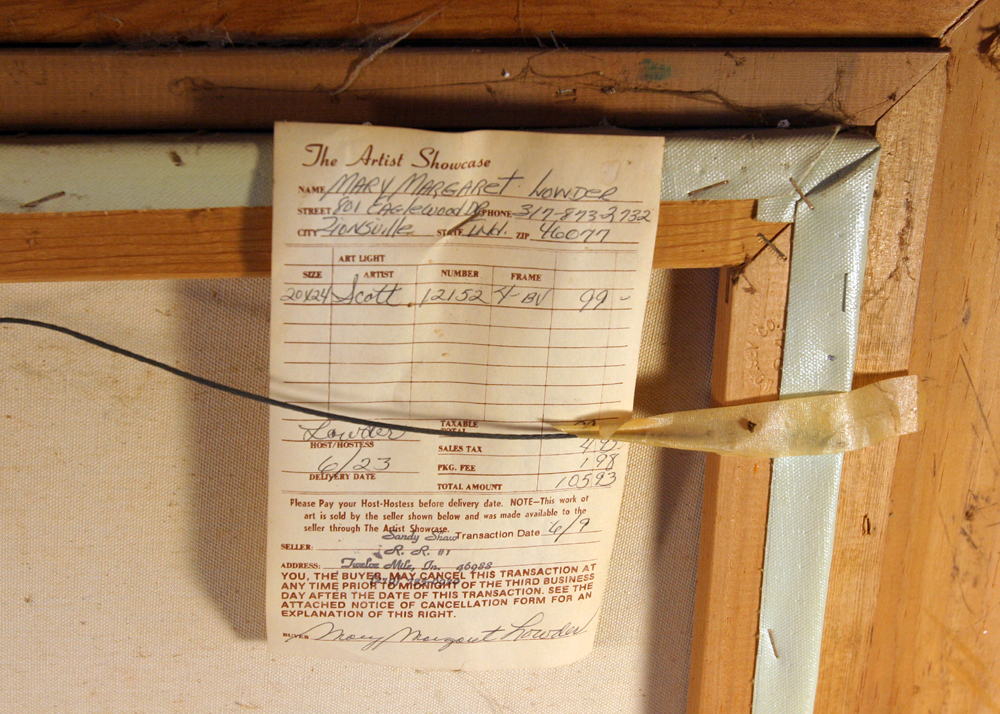 The Artist Showcase
NAME MARY MARGARET LOWDER
STREET 801 Eaglewood Dr PHONE 317-873-2732
CITY Zionsville STATE IND. ZIP 46077
ART LIGHT
SIZE ARTIST NUMBER FRAME
20x24 Scott 12152 4-BV 99-
TAXABLE
TOTAL
Lowder
HOST/HOSTESS
SALES TAX
6/23
PKG. FEE 1.98
DELIVERY DATE
TOTAL AMOUNT 105.93
Please Pay your Host-Hostess before delivery date. NOTE—This work of
art is sold by the seller shown below and was made available to the
seller through The Artist Showcase.
Sandy Shaw Transaction Date 6/9
SELLER: R. R. #1
ADDRESS: Twelve Mile, In. 46988
YOU, THE BUYER, MAY CANCEL THIS TRANSACTION AT
ANY TIME PRIOR TO MIDNIGHT OF THE THIRD BUSINESS
DAY AFTER THE DATE OF THIS TRANSACTION. SEE THE
ATTACHED NOTICE OF CANCELLATION FORM FOR AN
EXPLANATION OF THIS RIGHT.
BUYER Mary Margaret Lowder